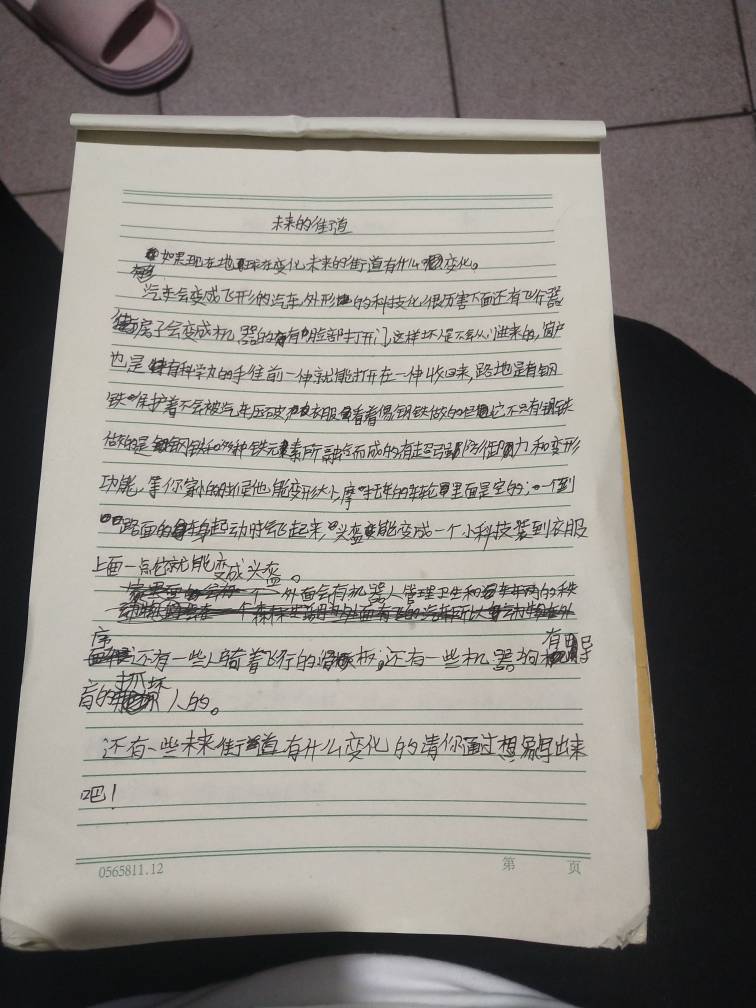 未来的街道
如果现在地球在变化未来的街道有什么变化。
汽车会变成飞形的汽车外形的科技化很厉害下面还有飞行器
房子会变成机器的有脸部打开门,这样坏人是不会从门进来的,窗户
也是有科学力的手往前一伸就能打开在一伸收回来,路地是有钢
铁保护着不会被汽车压破衣服看着像钢铁做的但它不只有钢铁
做的是钢铁和种铁元素所融合而成的有超强防御力和变形
功能,等你家的时候他能变形大小摩托车的车轮里面是空的;一个到
路面的车身起动时会飞起来,头盔能变成一个小科技装到衣服
上面一点它就能变成头盔。
外面会有机器人管理卫生和车辆的秩
序
还有一些人骑着飞行的滑板,还有一些机器狗有导
盲的抓坏人的。
还有一些未来街道有什么变化的请你通过想象写出来
吧!
0565811.12
第 页